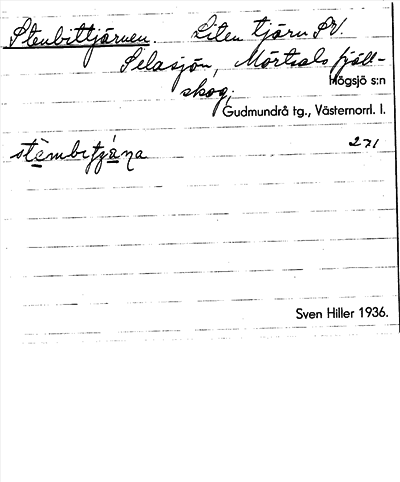 Stenbittjärnen. Liten tjärn SV.
Pelasjön, Mörtsals fjäll-
Högsjö s:n
skog.
Gudmundrå tg., Västernorrl. l.
stèmbitjä̀na 271
Sven Hiller 1936.